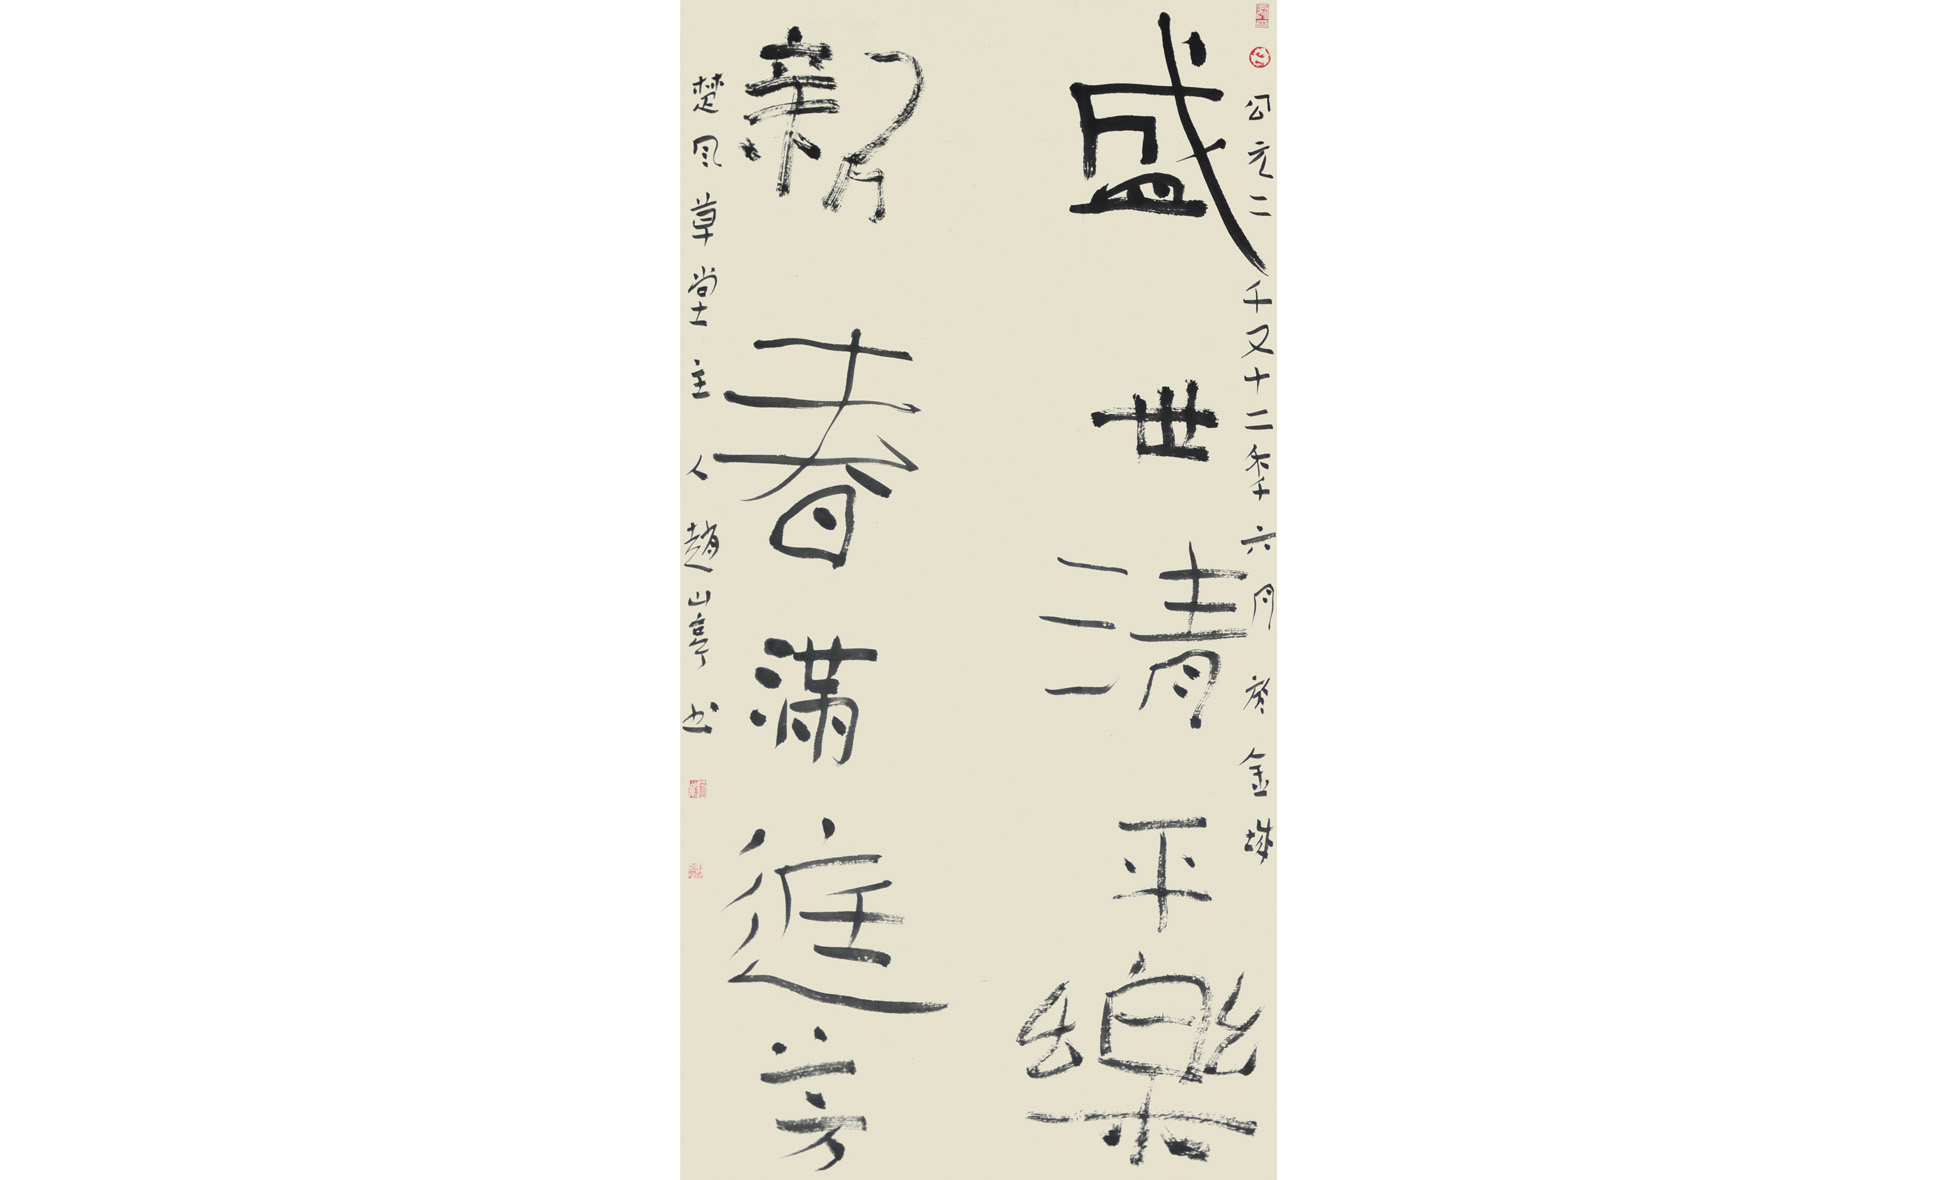 公元二千又十二秊六月於金城
盛世清平樂
新春滿庭芳
楚风草堂主人趙山亭书